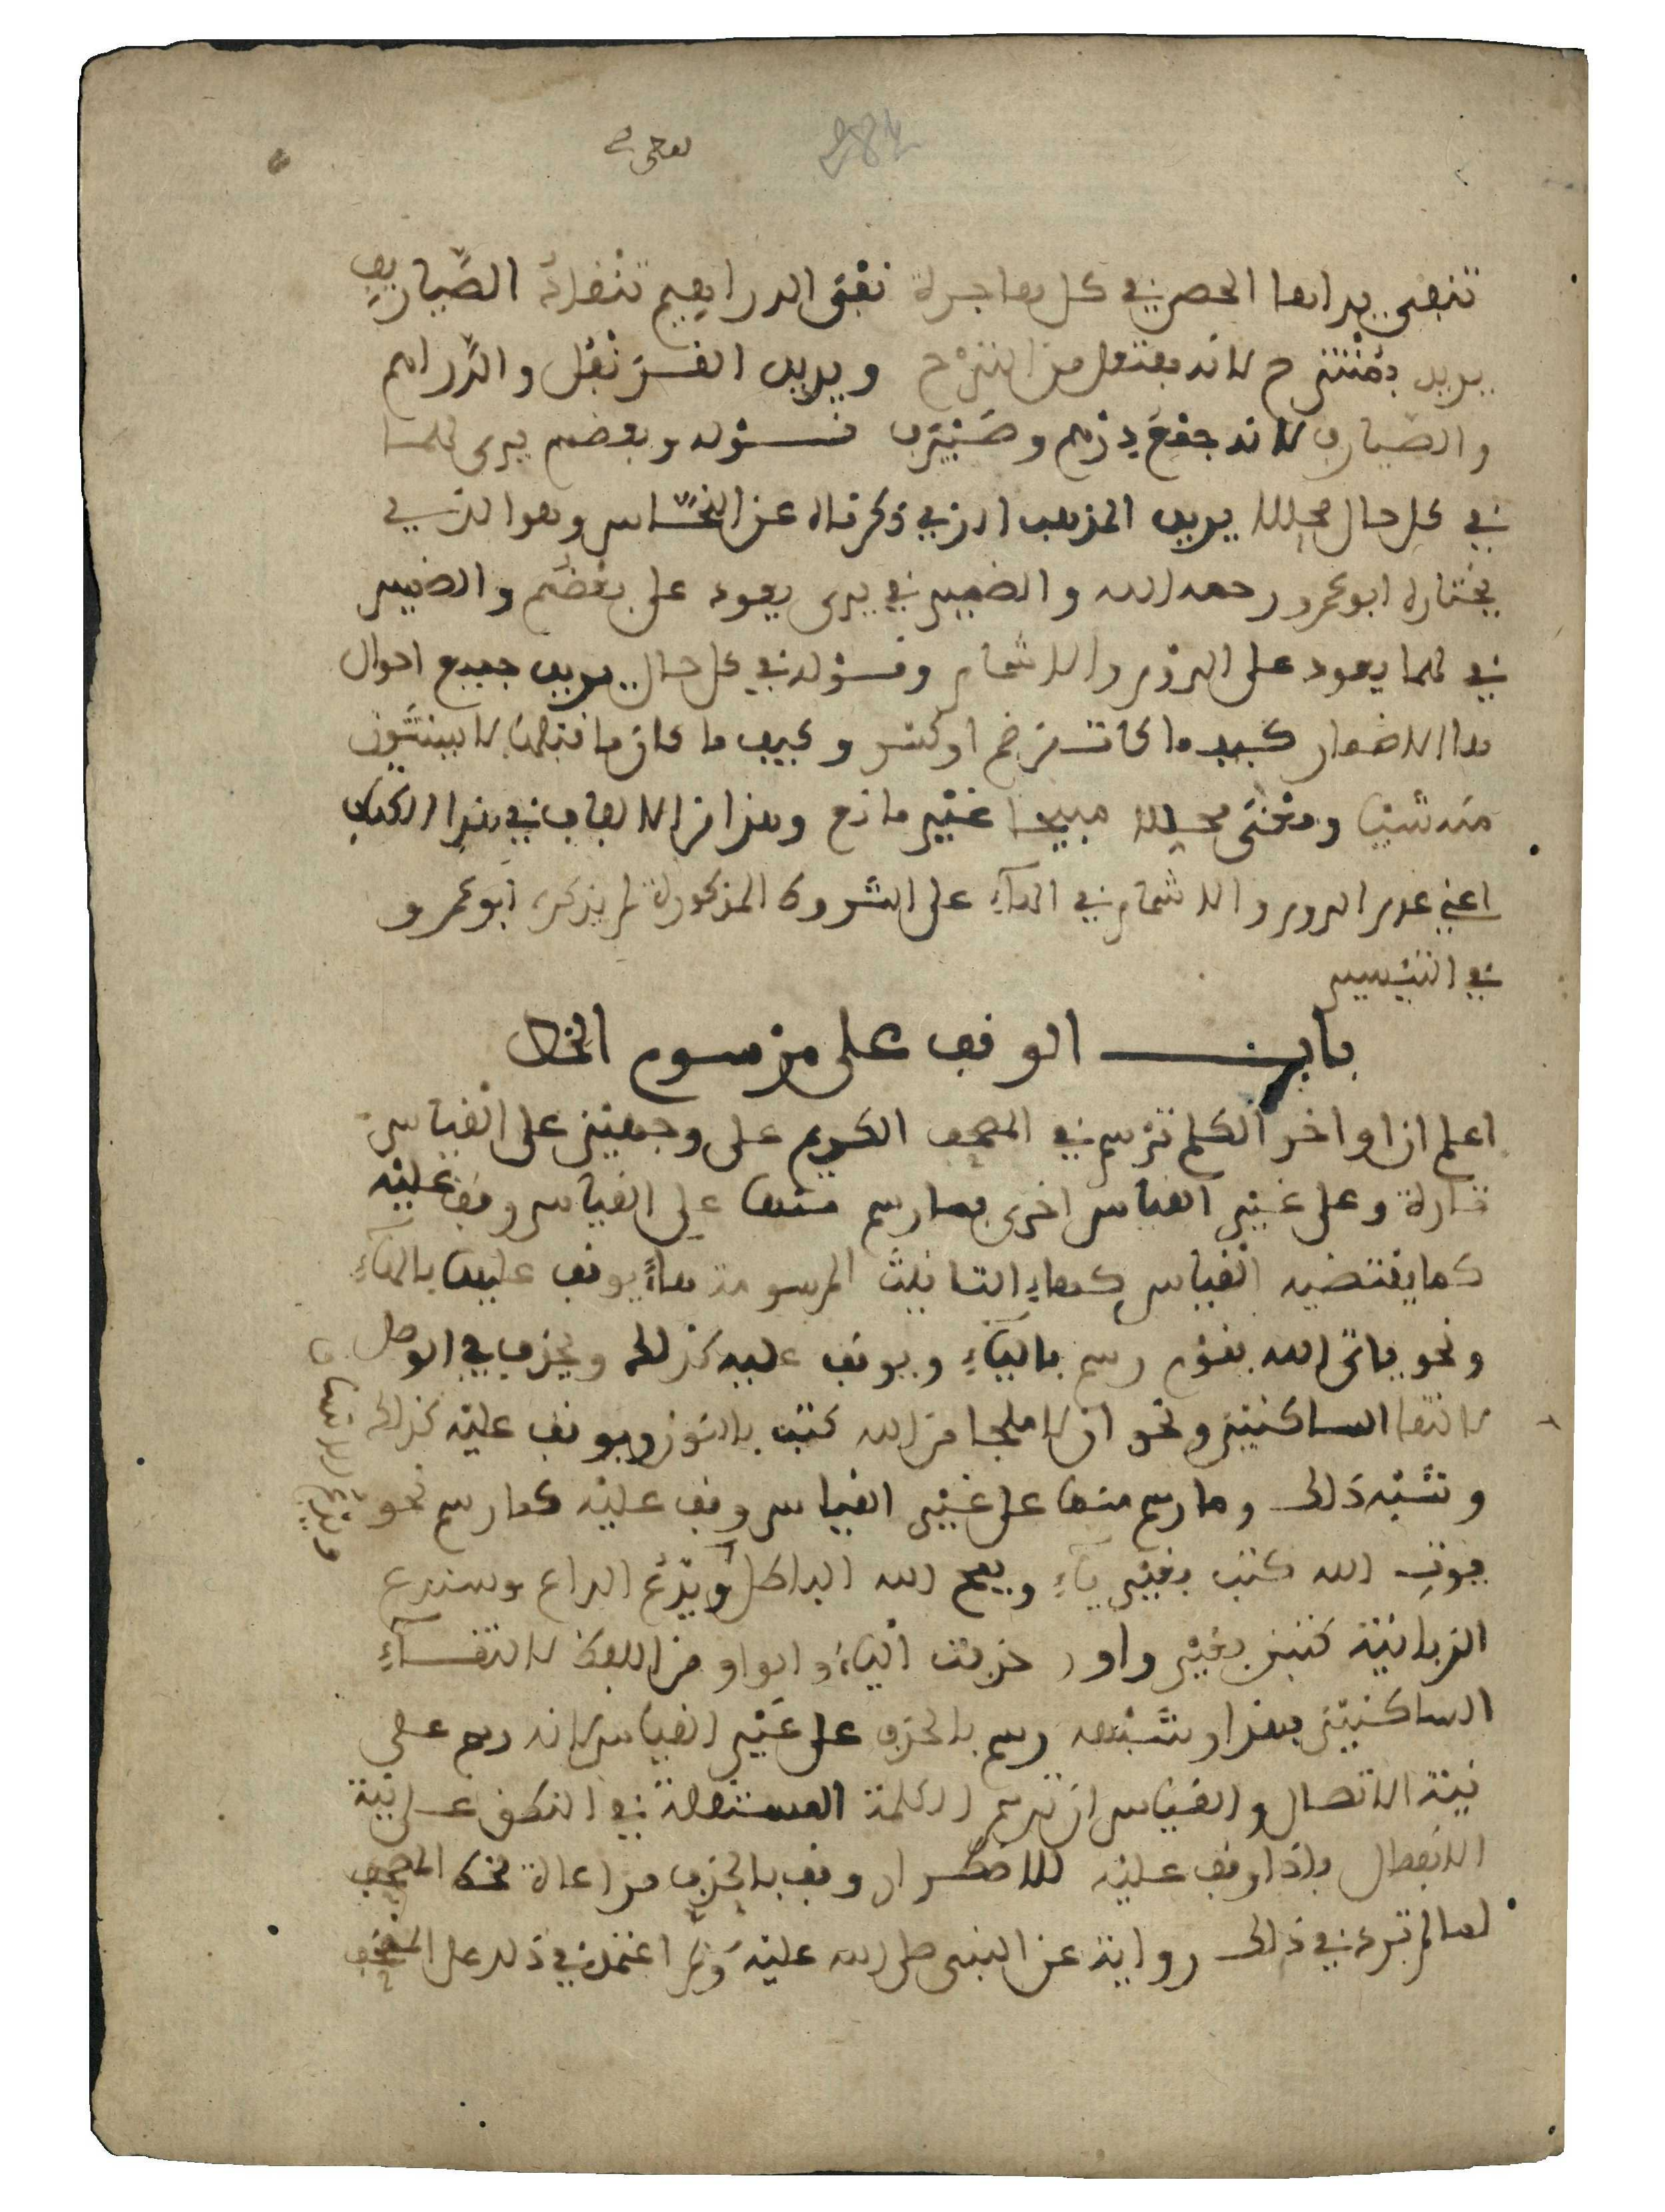 تنفى يداها الحصى في كل هاجرة نفي الدراهيم تنقاد الصياريف
يريد بمنتزح لانه مفتعل من النزح ويريد القرنفل والدراهم
والصيارف لانه جمع درهم وصيرف قوله وبعضهم يرى لهما
في كل حال محللا يريد المذهب الذي ذكرناه عن النحاس وهو الذي
يختاره ابو عمرو رحمه الله والضمير في يرى يعود على بعضهم والضمير
في لهما يعود على الروم والاشمام وقوله في كل حال يريد جميع احوال
هذا الاضمار كيف ما كانت من ضم او كسر وكيف ما كان ما قبلها لا يستثنون
منه شيئا ومعنى محللا مبيحا غير مانع وهذا من الالفاف في هذا الكتاب
اعني عدم الروم والاشمام في الهاء على الشروط المذكورة لم يذكره ابو عمرو
في التيسير
باب الوقف على مرسوم الخط
اعلم ان اواخر الكلم ترسم في المصحف الكريم على وجهين على القياس
تارة وعلى غير القياس اخرى فما رسم منها على القياس وقف عليه
كما يقتضيه القياس كهاء التانيث المرسومة هاء يوقف عليها بالهاء
ونحو ياتى الله بقوم رسم بالياء ويوقف عليه كذلك ويحذف في الوصل
لالتقا الساكنين ونحو ان لا ملجا من الله كتب بالنون ويوقف عليه كذلك
وشبه ذلك وما رسم منها على غير القياس وقف عليه كما رسم نحو
يوت الله كتب بغير ياء ويمح الله الباطل ويدع الداع وسندع
الزبانية كتبن بغير واو حذفت الياء والواو من اللفظ لالتقاء
الساكنين فهذا وشبهه رسم بالحذف على غير القياس لانه رسم على
نية الاتصال والقياس ان ترسم الكلمة المستقلة في النطق على نية
الانفصال فاذا وقف عليه للاضطرار وقف بالحذف مراعاة لخط المصحف
لما لم ترد في ذلك رواية عن النبى صلى الله عليه وسلم اعتمد في ذلك على المصحف